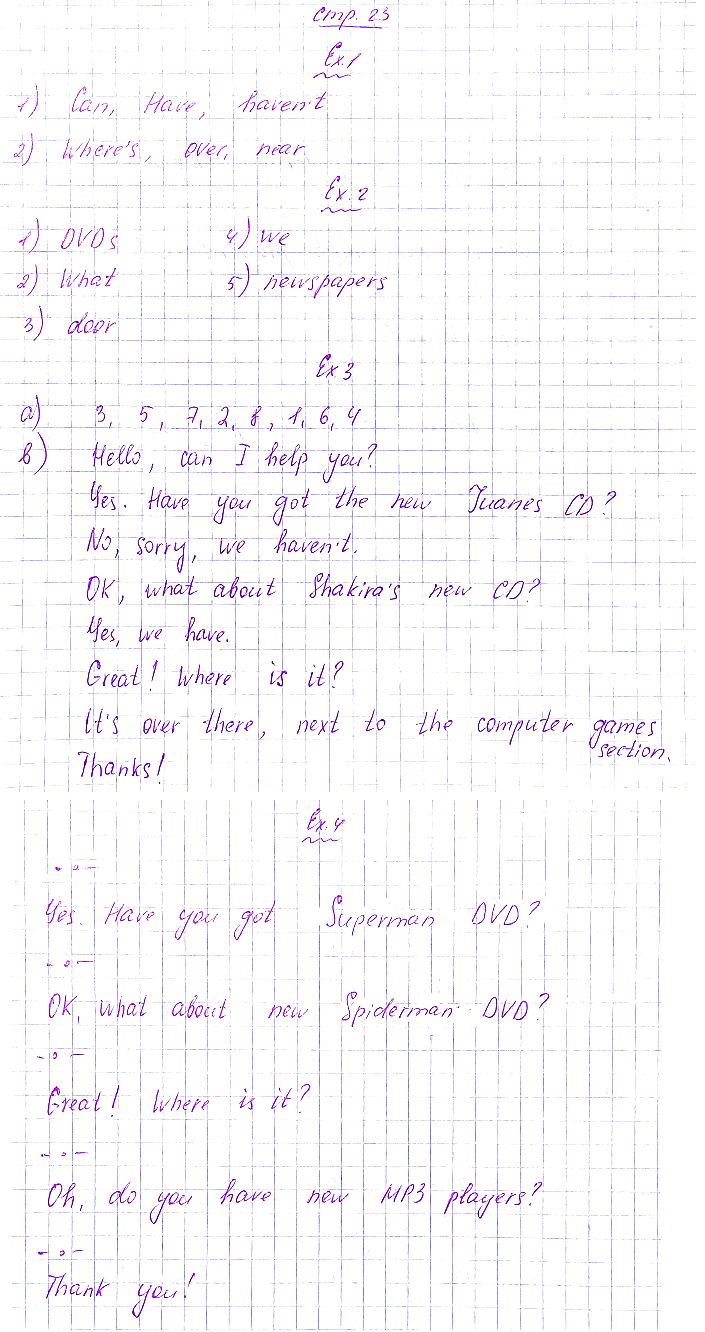 стр. 23
Ex.1
1) Can, Have, haven't
2) Where's, over, near
Ex. 2
1) DVDs 4) we
2) What 5) newspapers
3) door
Ex 3
a) 3, 5, 7, 2, 8, 1, 6, 4
b) Hello, can I help you?
Yes. Have you got the new Juanes CD?
No, sorry, we haven't.
OK, what about Shakira's new CD?
Yes, we have.
Great! Where is it?
It's over there, next to the computer games
section.
Thanks!
Ex. 4
- o -
Yes. Have you got Superman DVD?
- o -
OK, what about new Spiderman DVD?
- o -
Great! Where is it?
- o -
Oh, do you have new MP3 players?
- o -
Thank you!